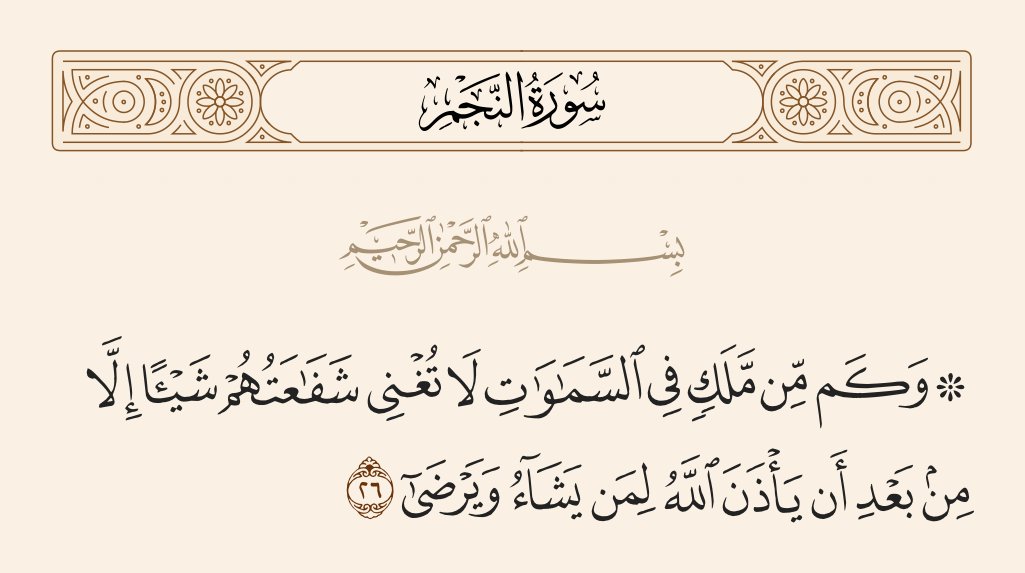 سُورَةُ النَّجۡمِ
بِسۡمِ ٱللَّهِ ٱلرَّحۡمَٰنِ ٱلرَّحِيمِ
۞ وَكَم مِّن مَّلَكٖ فِي ٱلسَّمَٰوَٰتِ لَا تُغۡنِي شَفَٰعَتُهُمۡ شَيۡـًٔا إِلَّا
مِنۢ بَعۡدِ أَن يَأۡذَنَ ٱللَّهُ لِمَن يَشَآءُ وَيَرۡضَىٰٓ ٢٦